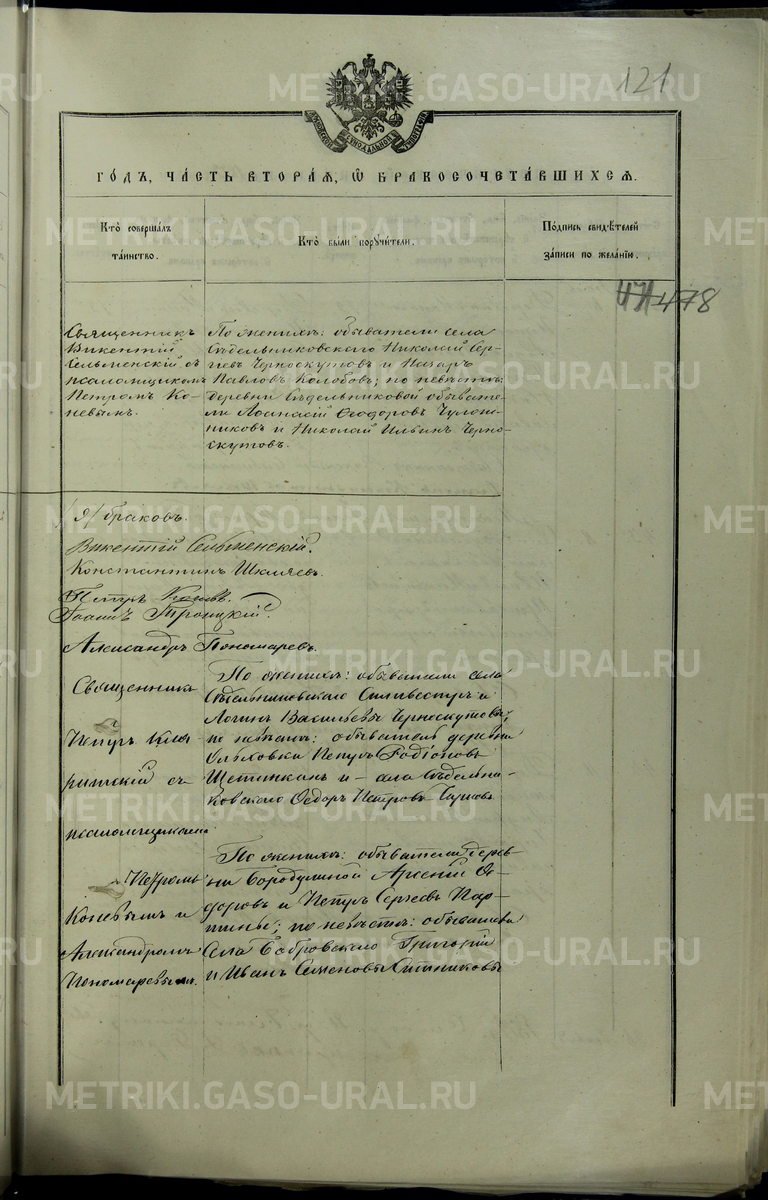 METRIKI.GASO-URAL.RU
121
МОСКОВСКОЙ СѴНОДАЛЬНОЙ ТИПОГРАФІИ
ГОДЪ, ЧАСТЬ ВТОРАЯ, Ѡ БРАКОСОЧЕТАВШИХСЯ.
Кто̀ совершалъ
та́инство.
Кто̀ были порꙋчи́тели.
По́дпись свидѣ́телей
за́писи по жела́нїю.
478
Священникъ
Викентій
Сельменскій съ
псаломщикомъ
Петромъ Ко-
невымъ.
По женихѣ: обыватели села
Сѣдельниковскаго Николай Сер-
гѣевъ Черноскутовъ и Назаръ
Павловъ Колобовъ; по невѣстѣ:
деревни Сѣдельниковой обывате-
ли Аѳанасій Ѳеодоровъ Чулош-
никовъ и Николай Ильинъ Черно-
скутовъ.
/9/ браковъ.
Викентій Сельменскій.
Константинъ Шкляевъ.
Петръ Коневъ.
Іоаннъ Троицкій.
Александръ Пономаревъ.
Священникъ
Петръ
ритскій съ
псаломщиками
Петромъ
Коневымъ и
Александромъ
Пономаревымъ.
По женихѣ: обыватели села
Сѣдельниковскаго Силивестръ и
Логинъ Васильевы Черноскутовы;
по невѣстѣ: обыватель деревни
Ольховки Петръ Родіоновъ
Щетинкинъ и – села Сѣдельни-
ковскаго Ѳедоръ Петровъ
По женихѣ: обыватели дерев-
ни Бородулиной Арсеній Ѳе-
доровъ и Петръ Сергѣевъ Пар-
тины; по невѣстѣ: обыватели
села Бобровскаго Григорій
и Иванъ Семеновы Ситниковы